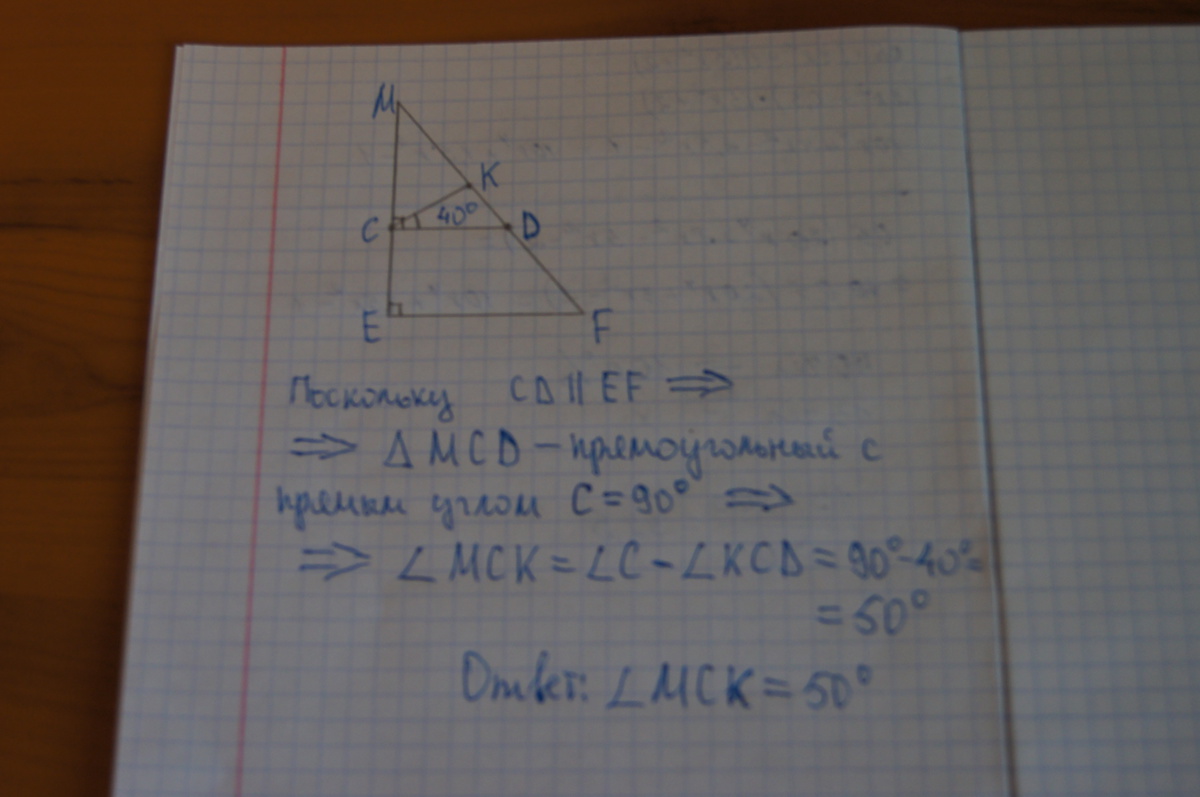 M
K
40°
C
D
E
F
Поскольку CD || EF ⇒
⇒ Δ MCD – прямоугольный с
прямым углом C = 90° ⇒
⇒ ∠MCK = ∠C - ∠KCD = 90° - 40° =
= 50°
Ответ: ∠MCK = 50°